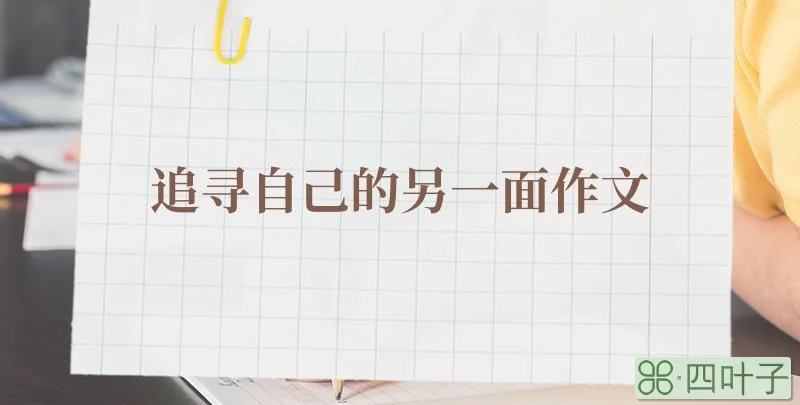 追寻自己的另一面作文
四叶子